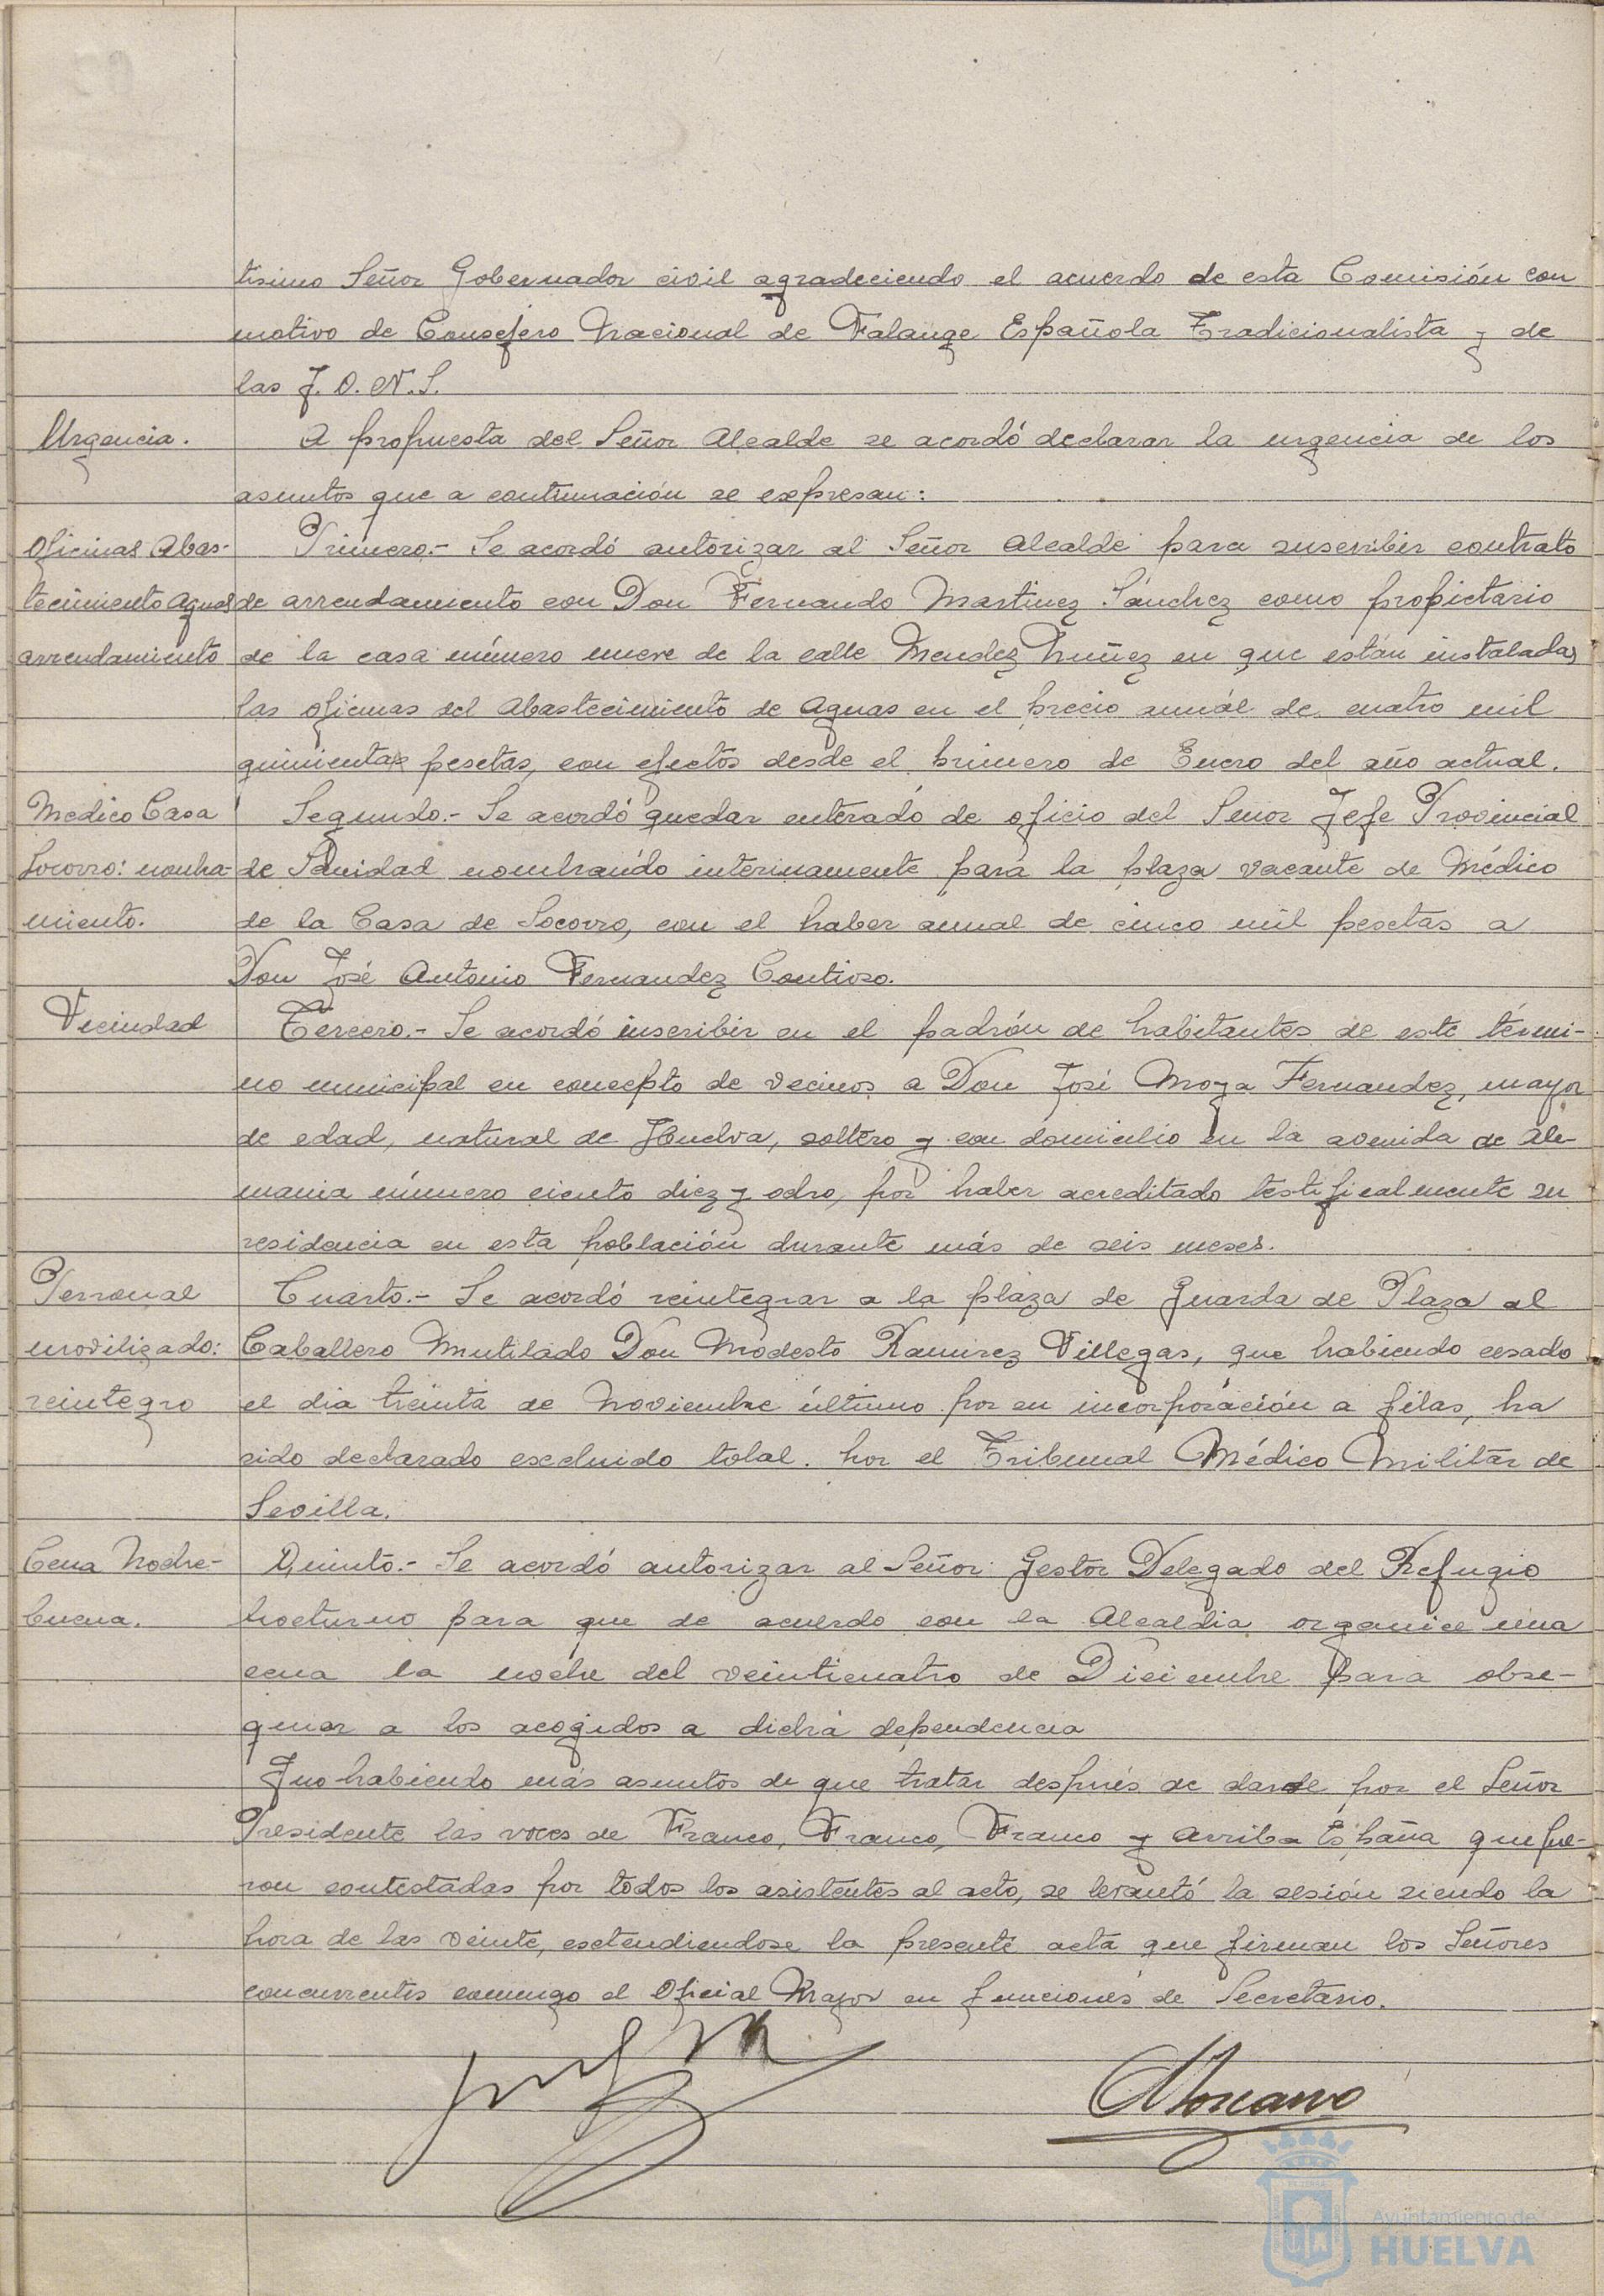 tísimo Señor Gobernador civil agradeciendo el acuerdo de esta Comisión con
motivo de Consejero Nacional de Falange Española Tradicionalista y de
las J.O.N.S.
Urgencia.
A propuesta del Señor Alcalde se acordó declarar la urgencia de los
asuntos que a continuación se expresan:
Oficinas Abas-
tecimiento Aguas
arrendamiento
Primero.- Se acordó autorizar al Señor Alcalde para suscribir contrato
de arrendamiento con Don Fernando Martinez Sánchez como propietario
de la casa número nueve de la calle Mendez Nuñez en que están instaladas
las oficinas del Abastecimiento de Aguas en el precio anual de cuatro mil
quinientas pesetas, con efectos desde el primero de Enero del año actual.
Medico Casa
Socorro: nombra-
miento.
Segundo.- Se acordó quedar enterado de oficio del Señor Jefe Provincial
de Sanidad nombrando interinamente para la plaza vacante de Médico
de la Casa de Socorro, con el haber anual de cinco mil pesetas a
Don José Antonio Fernandez Contioso.
Vecindad
Tercero.- Se acordó inscribir en el padrón de habitantes de este térmi-
no municipal en concepto de vecinos a Don José Moya Fernandez, mayor
de edad, natural de Huelva, soltero y con domicilio en la avenida de Ale-
mania número ciento diez y ocho, por haber acreditado testificalmente su
residencia en esta población durante más de seis meses.
Personal
movilizado:
reintegro
Cuarto.- Se acordó reintegrar a la plaza de Guarda de Plaza al
Caballero Mutilado Don Modesto Ramirez Villegas, que habiendo cesado
el dia treinta de Noviembre último por su incorporación a filas, ha
sido declarado excluido total por el Tribunal Médico Militar de
Sevilla.
Cena Noche-
buena.
Quinto.- Se acordó autorizar al Señor Gestor Delegado del Refugio
nocturno para que de acuerdo con la Alcaldia organice una
cena la noche del veinticuatro de Diciembre para obse-
quiar a los acogidos a dicha dependencia
Y no habiendo más asuntos de que tratar después de darse por el Señor
Presidente las voces de Franco, Franco, Franco y Arriba España que fue-
ron contestadas por todos los asistentes al acto, se levantó la sesión siendo la
hora de las veinte, extendiendose la presente acta que firman los Señores
concurrentes conmigo el Oficial Mayor en funciones de Secretario.
Ayuntamiento de
HUELVA